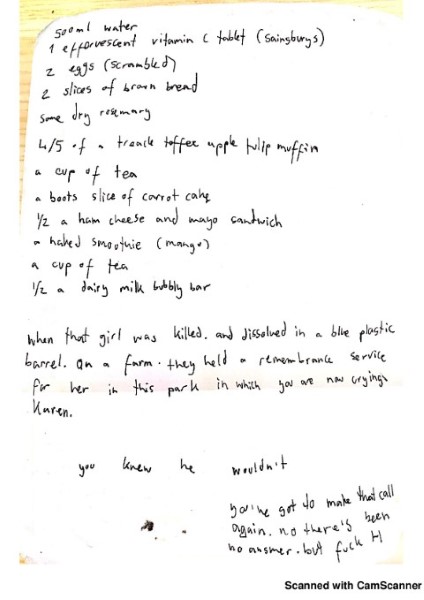 500ml water
1 effervescent vitamin C tablet (sainsburys)
2 eggs (scrambled)
2 slices of brown bread
some dry rosemary
4/5 of a treacle toffee apple tulip muffin
a cup of tea
a boots slice of carrot cake
1/2 a ham cheese and mayo sandwich
a naked smoothie (mango)
a cup of tea
1/2 a dairy milk bubbly bar
when that girl was killed. and dissolved in a blue plastic
barrel. on a farm. they held a remembrance service
for her in this park in which you are now crying.
Karen.
you knew he wouldn't
you've got to make that call
again. no there's been
no answer. but fuck
Scanned with CamScanner